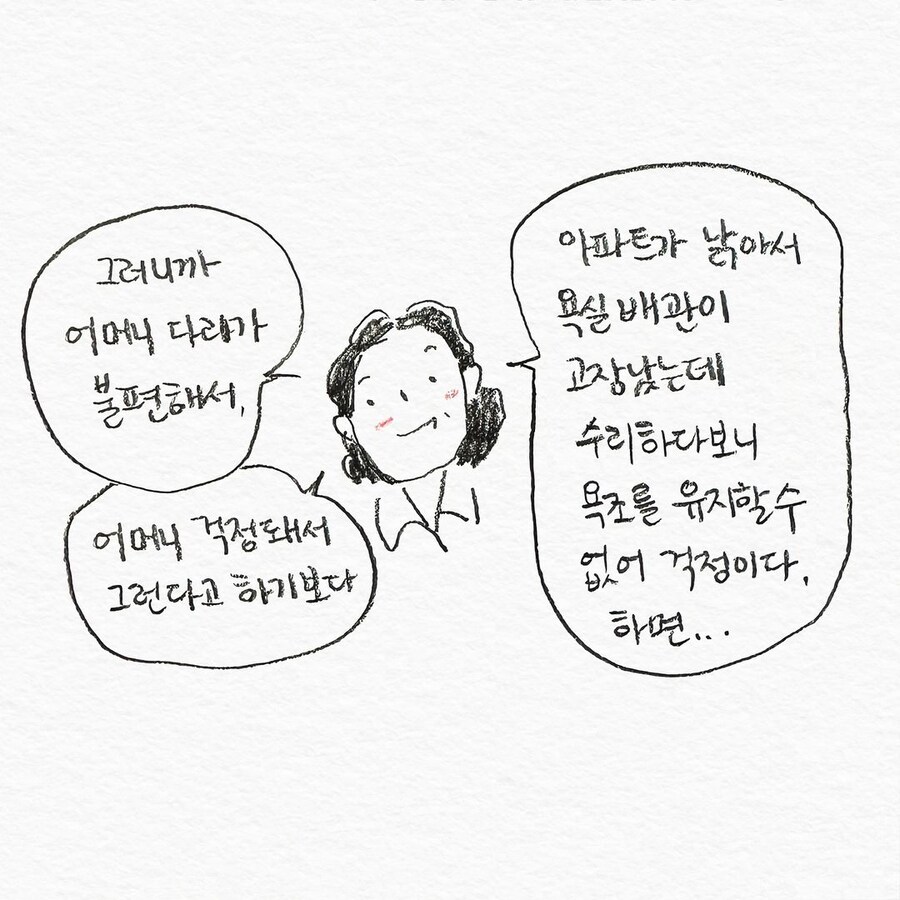 그러니까
어머니 다리가
불편해서,
어머니 걱정돼서
그런다고 하기보다
아파트가 낡아서
욕실 배관이
고장났는데
수리하다보니
욕조를 유지할 수
없어 걱정이다,
하면...